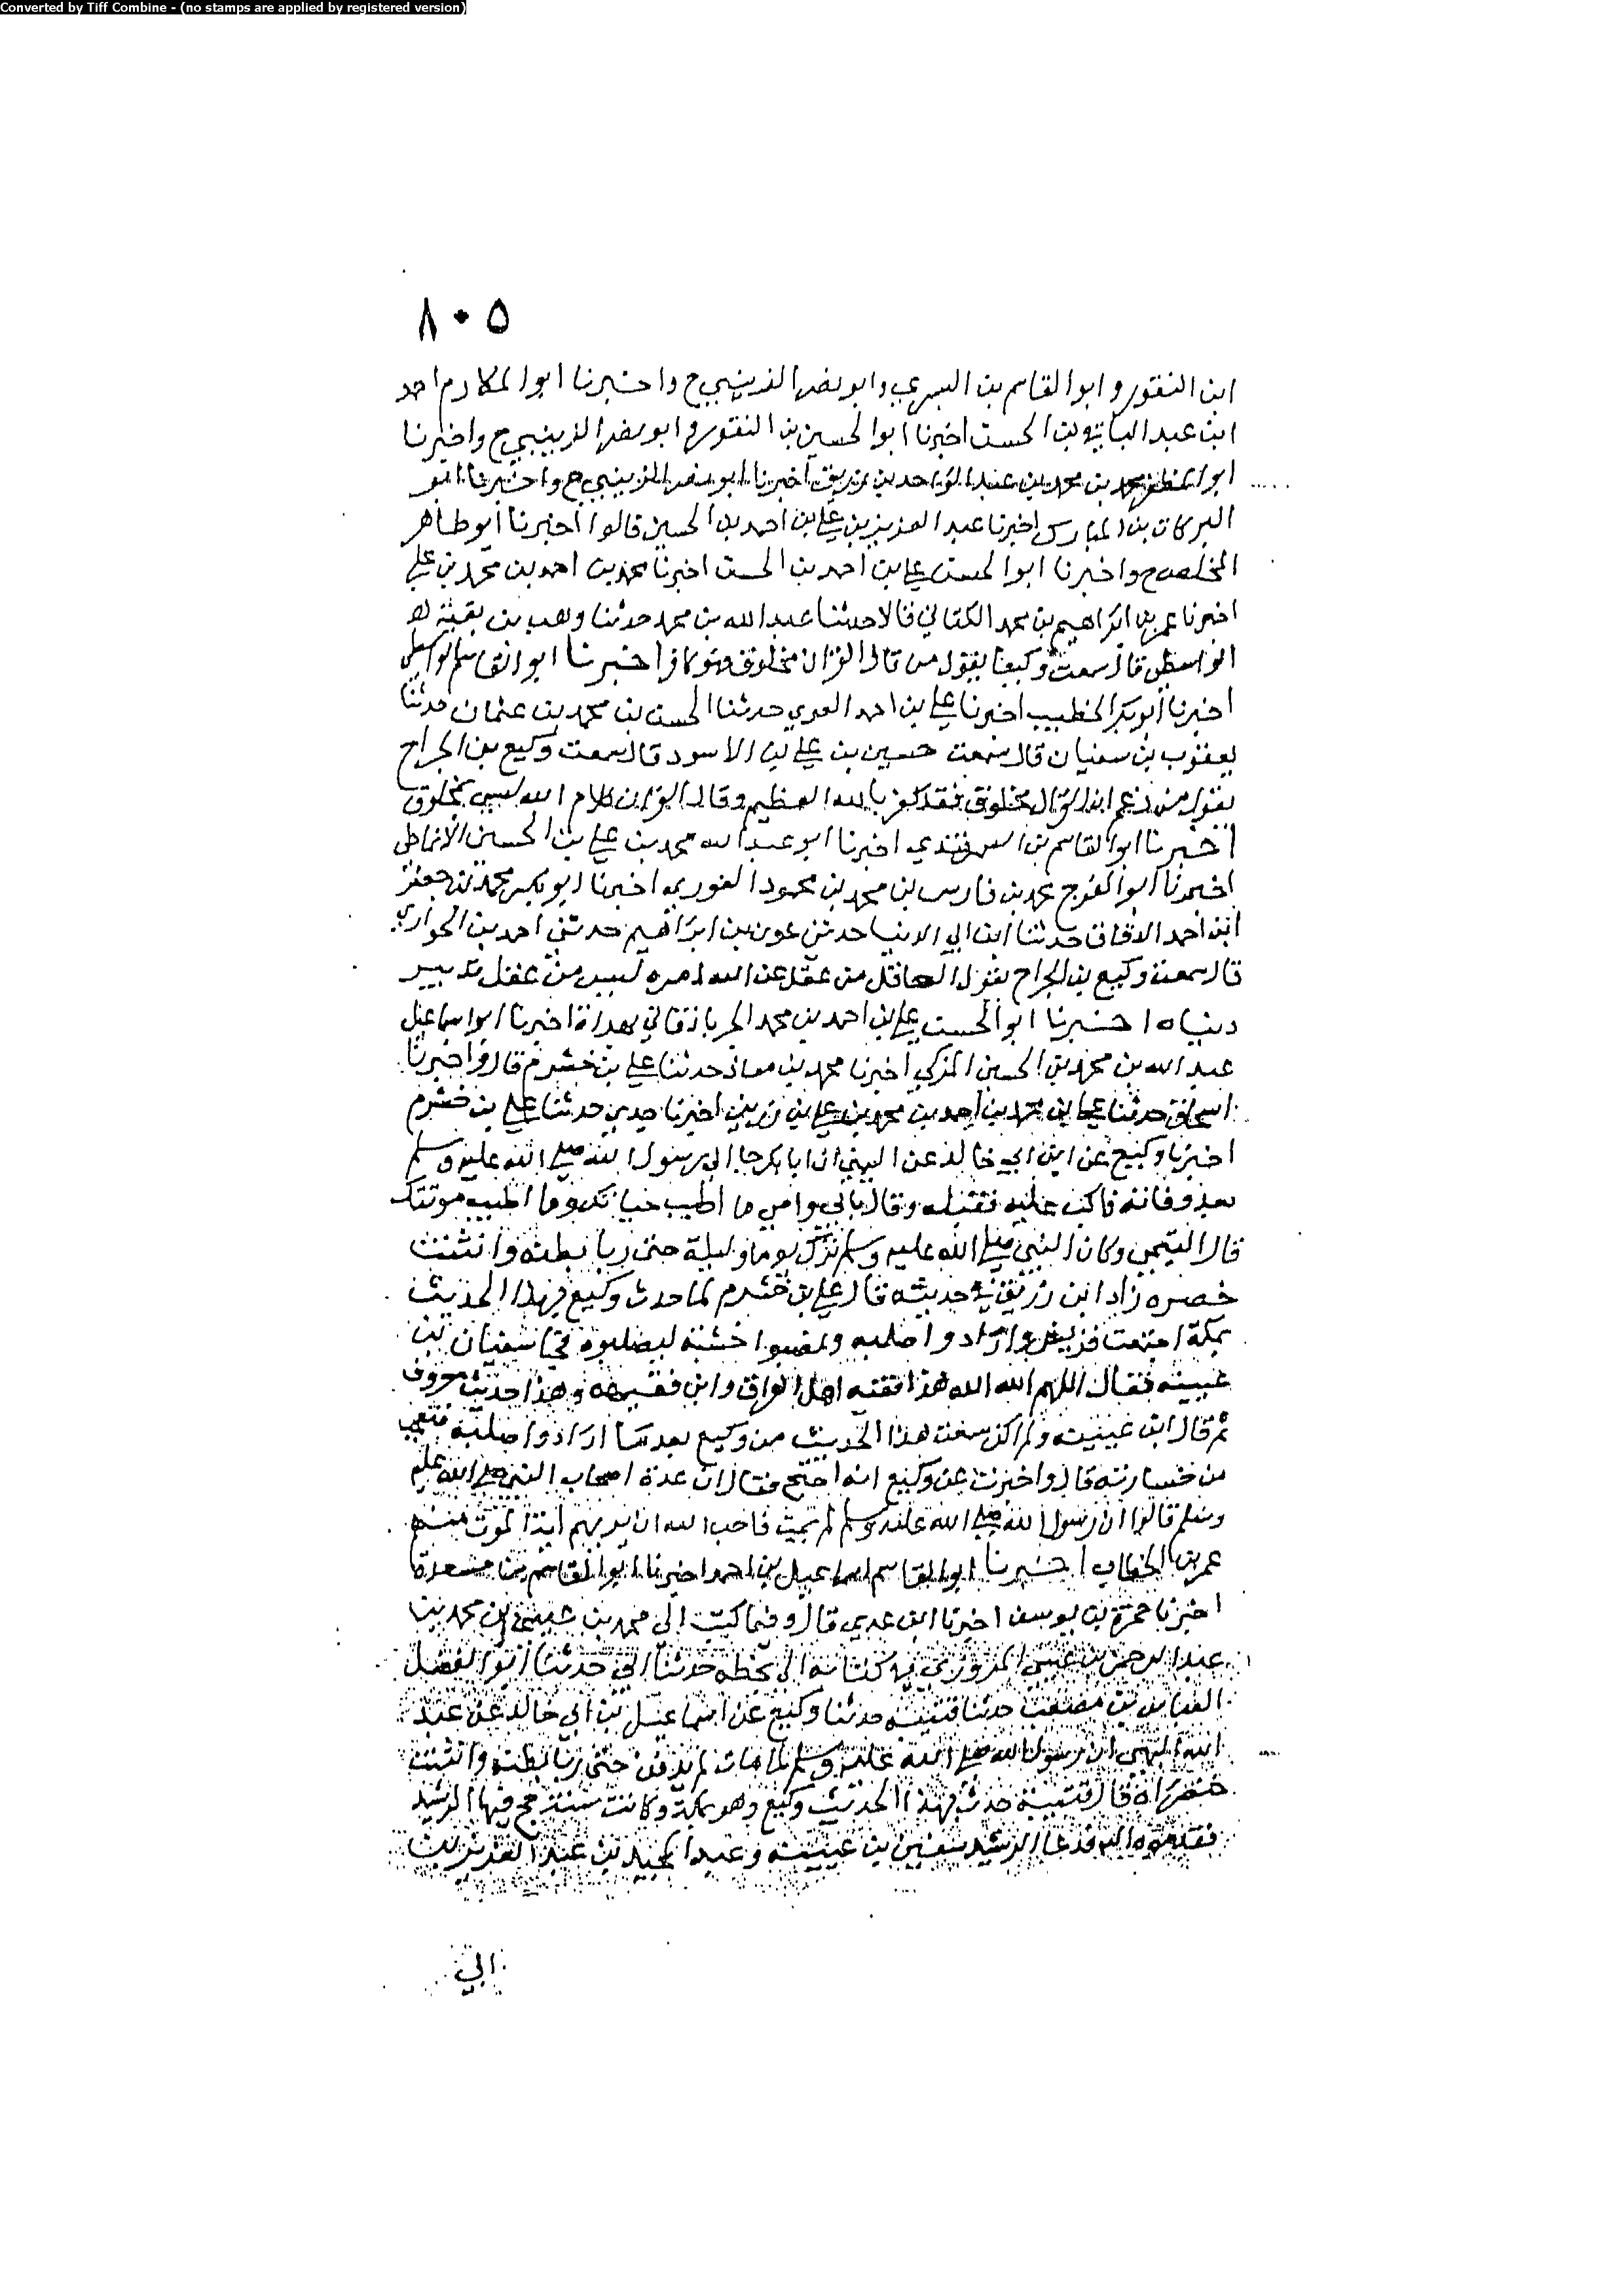 Converted by Tiff Combine - (no stamps are applied by registered version)
٨٠٥
ابن النقور وابو القاسم بن البسري وابو نصر الزينبي ح واخبرنا ابو المكارم احمد
ابن عبد الباقي بن الحسن اخبرنا ابو الحسين بن النقور وابو نصر الزينبي ح واخبرنا
ابو المظفر محمد بن محمد بن عبد الواحد بن زريق اخبرنا ابو نصر الزينبي ح واخبرنا ابو
البركات بن المبارك اخبرنا عبد العزيز بن علي بن احمد بن الحسين قالوا اخبرنا ابو طاهر
المخلص ح واخبرنا ابو الحسن علي بن احمد بن الحسن اخبرنا محمد بن احمد بن محمد بن علي
اخبرنا عمر بن ابراهيم بن محمد الكتاني قالا حدثنا عبد الله بن محمد حدثنا وهب بن بقية
الواسطي قال سمعت وكيعا يقول من قال القران مخلوق فهو كافر اخبرنا ابو القاسم الواسطي
اخبرنا ابو بكر الخطيب اخبرنا علي بن احمد حدثنا الحسن بن محمد بن عثمان حدثنا
يعقوب بن سفيان قال سمعت حسين بن علي بن الاسود قال سمعت وكيع بن الجراح
يقول من زعم ان القران مخلوق فقد كفر بالله العظيم وقال القران كلام الله ليس بمخلوق
اخبرنا ابو القاسم بن السمرقندي اخبرنا ابو عبد الله محمد بن علي بن الحسين الانماطي
اخبرنا ابو الفرج محمد بن فارس بن محمد بن محمود الغوري اخبرنا ابو بكر محمد بن جعفر
ابن احمد حدثنا ابن ابي الدنيا حدثني عون بن ابراهيم حدثني احمد بن الحواري
قال سمعت وكيع بن الجراح يقول العاقل من عقل عن الله امره ليس من عقل تدبير
دنياه اخبرنا ابو الحسن علي بن احمد بن محمد الجرباذقاني بهراة اخبرنا ابو اسماعيل
عبد الله بن محمد بن الحسين المزكي اخبرنا محمد بن معاذ حدثنا علي بن خشرم قال واخبرنا
اسحاق حدثنا محمد بن احمد بن محمد بن علي بن رزين اخبرنا جدي حدثنا علي بن خشرم
اخبرنا وكيع عن ابن ابي خالد عن البهي ان ابا بكر جا الى رسول الله صلى الله عليه وسلم
بعد وفاته فاكب عليه فقبله وقال بابي وامي ما اطيب حياتك وما اطيب موتتك
قال البهي وكان النبي صلى الله عليه وسلم ترك يوما وليلة حتى ربا بطنه وانثنت
خنصره زاد ابن رزيق في حديثه قال علي بن خشرم لما حدث وكيع بهذا الحديث
بمكة اجتمعت قريش وارادوا صلبه ونصبوا خشبة ليصلبوه فجا سفيان بن
عيينه فقال اللهم الله الله هذا فقيه اهل العراق وابن فقيهه وهذا حديث معروف
ثم قال ابن عيينه ولم اكن سمعت هذا الحديث من وكيع بعد ما ارادوا صلبه فتعجب
من جسارته قال واخبرت عن وكيع انه احتج فقال ان عدة اصحاب النبي صلى الله عليه
وسلم قالوا ان رسول الله صلى الله عليه وسلم لم يمت فاحب الله ان يريهم اية الموت منهم
عمر بن الخطاب اخبرنا ابو القاسم اسماعيل بن احمد اخبرنا ابو القاسم بن مسعدة
اخبرنا حمزة بن يوسف اخبرنا ابن عدي قال وفيما كتب الي محمد بن عيسى بن محمد بن
عبد الرحمن بن عيسى المروزي في كتابه الي بخطه حدثنا ابي حدثنا ابو الفضل
العباس بن مصعب حدثنا قتيبه حدثنا وكيع عن اسماعيل بن ابي خالد عن عبد
الله البهي ان رسول الله صلى الله عليه وسلم لما مات لم يدفن حتى ربا بطنه وانثنت
خنصراه قال قتيبة حدث بهذا الحديث وكيع وهو بمكة وكانت سنة حج فيها الرشيد
فقدموه اليه فدعا الرشيد سفين بن عيينه وعبد المجيد بن عبد العزيز بن
ابي